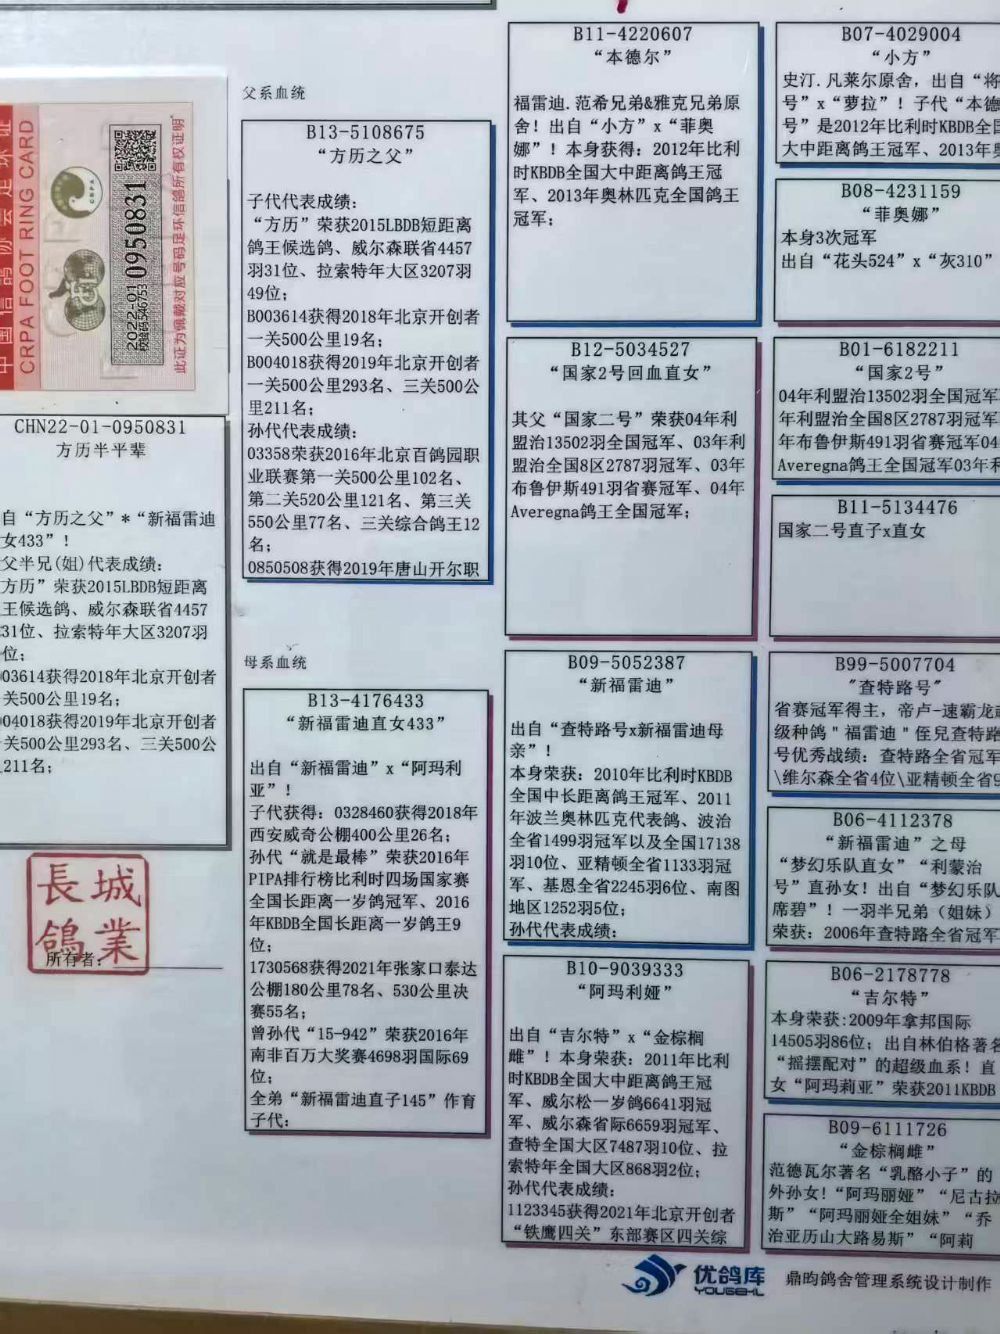 中国信鸽协会足环证
CRPA FOOT RING CARD
CRPA
2022-01 0950831
校验码546753
此证为佩戴对应号码足环信鸽所有权证明
CHN22-01-0950831
方历半平辈
自“方历之父”*“新福雷迪
女433”！
父半兄(姐)代表成绩：
方历”荣获2015LBDB短距离
王候选鸽、威尔森联省4457
31位、拉索特年大区3207羽
位；
03614获得2018年北京开创者
关500公里19名；
04018获得2019年北京开创者
关500公里293名、三关500公
211名；
長城
鴿業
所有者：
父系血统
B13-5108675
“方历之父”
子代代表成绩：
“方历”荣获2015LBDB短距离
鸽王候选鸽、威尔森联省4457
羽31位、拉索特年大区3207羽
49位；
B003614获得2018年北京开创者
一关500公里19名；
B004018获得2019年北京开创者
一关500公里293名、三关500公
里211名；
孙代代表成绩：
03358荣获2016年北京百鸽园职
业联赛第一关500公里102名、
第二关520公里121名、第三关
550公里77名、三关综合鸽王12
名；
0850508获得2019年唐山开尔职
母系血统
B13-4176433
“新福雷迪直女433”
出自“新福雷迪”x“阿玛利
亚”！
子代获得：0328460获得2018年
西安威奇公棚400公里26名；
孙代“就是最棒”荣获2016年
PIPA排行榜比利时四场国家赛
全国长距离一岁鸽冠军、2016
年KBDB全国长距离一岁鸽王9
位；
1730568获得2021年张家口泰达
公棚180公里78名、530公里决
赛55名；
曾孙代“15-942”荣获2016年
南非百万大奖赛4698羽国际69
位；
全弟“新福雷迪直子145”作育
子代：
B11-4220607
“本德尔”
福雷迪.范希兄弟&雅克兄弟原
舍！出自“小方”x“菲奥
娜”！本身获得：2012年比利
时KBDB全国大中距离鸽王冠
军、2013年奥林匹克全国鸽王
冠军；
B12-5034527
“国家2号回血直女”
其父“国家二号”荣获04年利
盟治13502羽全国冠军、03年利
盟治全国8区2787羽冠军、03年
布鲁伊斯491羽省赛冠军、04年
Averegna鸽王全国冠军；
B09-5052387
“新福雷迪”
出自“查特路号x新福雷迪母
亲”！
本身荣获：2010年比利时KBDB
全国中长距离鸽王冠军、2011
年波兰奥林匹克代表鸽、波治
全省1499羽冠军以及全国17138
羽10位、亚精顿全省1133羽冠
军、基恩全省2245羽6位、南图
地区1252羽5位；
孙代代表成绩：
B10-9039333
“阿玛利娅”
出自“吉尔特”x“金棕榈
雌”！本身荣获：2011年比利
时KBDB全国大中距离鸽王冠
军、威尔松一岁鸽6641羽冠
军、威尔森省际6659羽冠军、
查特全国大区7487羽10位、拉
索特年全国大区868羽2位；
孙代代表成绩：
1123345获得2021年北京开创者
“铁鹰四关”东部赛区四关综
B07-4029004
“小方”
史汀.凡莱尔原舍，出自“将
号”x“萝拉”！子代“本德
号”是2012年比利时KBDB全国
大中距离鸽王冠军、2013年奥
B08-4231159
“菲奥娜”
本身3次冠军
出自“花头524”x“灰310”
B01-6182211
“国家2号”
04年利盟治13502羽全国冠军
年利盟治全国8区2787羽冠军
年布鲁伊斯491羽省赛冠军04
Averegna鸽王全国冠军03年利
B11-5134476
国家二号直子x直女
B99-5007704
"查特路号"
省赛冠军得主，帝卢-速霸龙
级种鸽＂福雷迪＂侄兄查特路
号优秀战绩：查特路全省冠军
\维尔森全省4位\亚精顿全省9
B06-4112378
“新福雷迪”之母
“梦幻乐队直女”“利蒙治
号”直孙女！出自“梦幻乐队
席碧”！一羽半兄弟（姐妹）
荣获：2006年查特路全省冠军
B06-2178778
“吉尔特”
本身荣获:2009年拿邦国际
14505羽86位；出自林伯格著名
“摇摆配对”的超级血系！直
女“阿玛莉亚”荣获2011KBDB
B09-6111726
“金棕榈雌”
范德瓦尔著名“乳酪小子”的
外孙女！“阿玛丽娅”“尼古拉
斯”“阿玛丽娅全姐妹”“乔
治亚历山大路易斯”“阿莉
优鸽库
YOUGEHL
鼎昀鸽舍管理系统设计制作